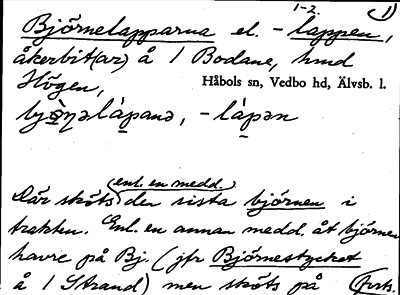 1-2. 1)
Björnelapparna el. - lappen,
åkerbit(ar) å 1 Bodane, hmd
Högen,
Håbols sn, Vedbo hd, Älvsb. l.
-lápən
(enl. en medd.)
Där sköts den sista björnen i
trakten. Enl. en annan medd. åt björnen
havre på Bj. (jfr Björnestycket
å 1 Strand) men sköts på (forts.